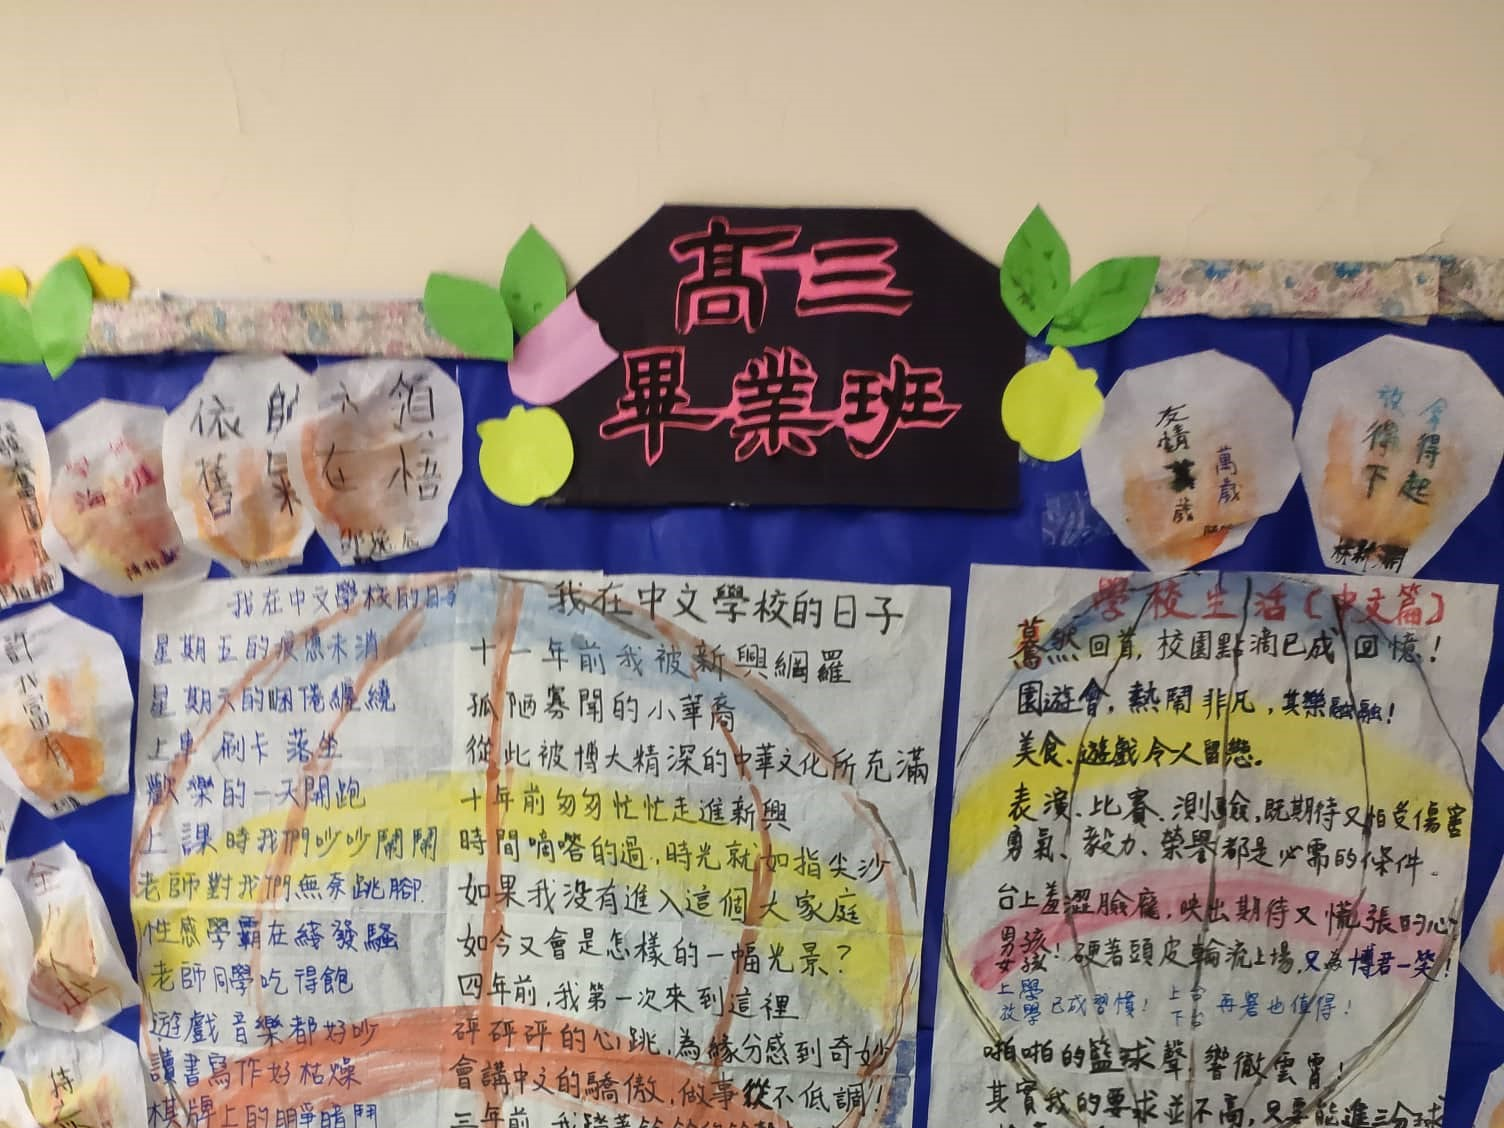 高三
畢業班
依舊
帥氣
領悟
友情萬歲
萬歲
拿得起
放得下
林新潤
我在中文學校的日子
星期五的疲憊未消
星期六的睏倦纏繞
上車 刷卡 落坐
歡樂的一天開跑
上課時我們吵吵鬧鬧
老師對我們無奈跳腳
性感學霸在綫發騷
老師同學吃得飽
遊戲音樂都好吵
讀書寫作好枯燥
棋牌上的明爭暗鬥
我在中文學校的日子
十一年前我被新興網羅
孤陋寡聞的小華裔
從此被博大精深的中華文化所充滿
十年前匆匆忙忙走進新興
時間嘀嗒的過，時光就如指尖沙
如果我没有進入這個大家庭
如今又會是怎樣的一幅光景？
四年前，我第一次來到這裡
砰砰砰的心跳，為緣分感到奇妙
會講中文的驕傲，做事從不低調！
三年前，我
學校生活（中文篇）
驀然回首，校園點滴已成回憶！
園遊會，熱鬧非凡，其樂融融！
美食、遊戲令人留戀。
表演、比賽、測驗，既期待又怕受傷害
勇氣、毅力、榮譽都是必需的條件。
台上羞澀臉龐，映出期待又慌張的心
男孩女孩！硬著頭皮輪流上場，只為博君一笑！
上學放學已成習慣！上台下台再累也值得！
啪啪的籃球聲，響徹雲霄！
其實我的要求並不高，只要能進三分球